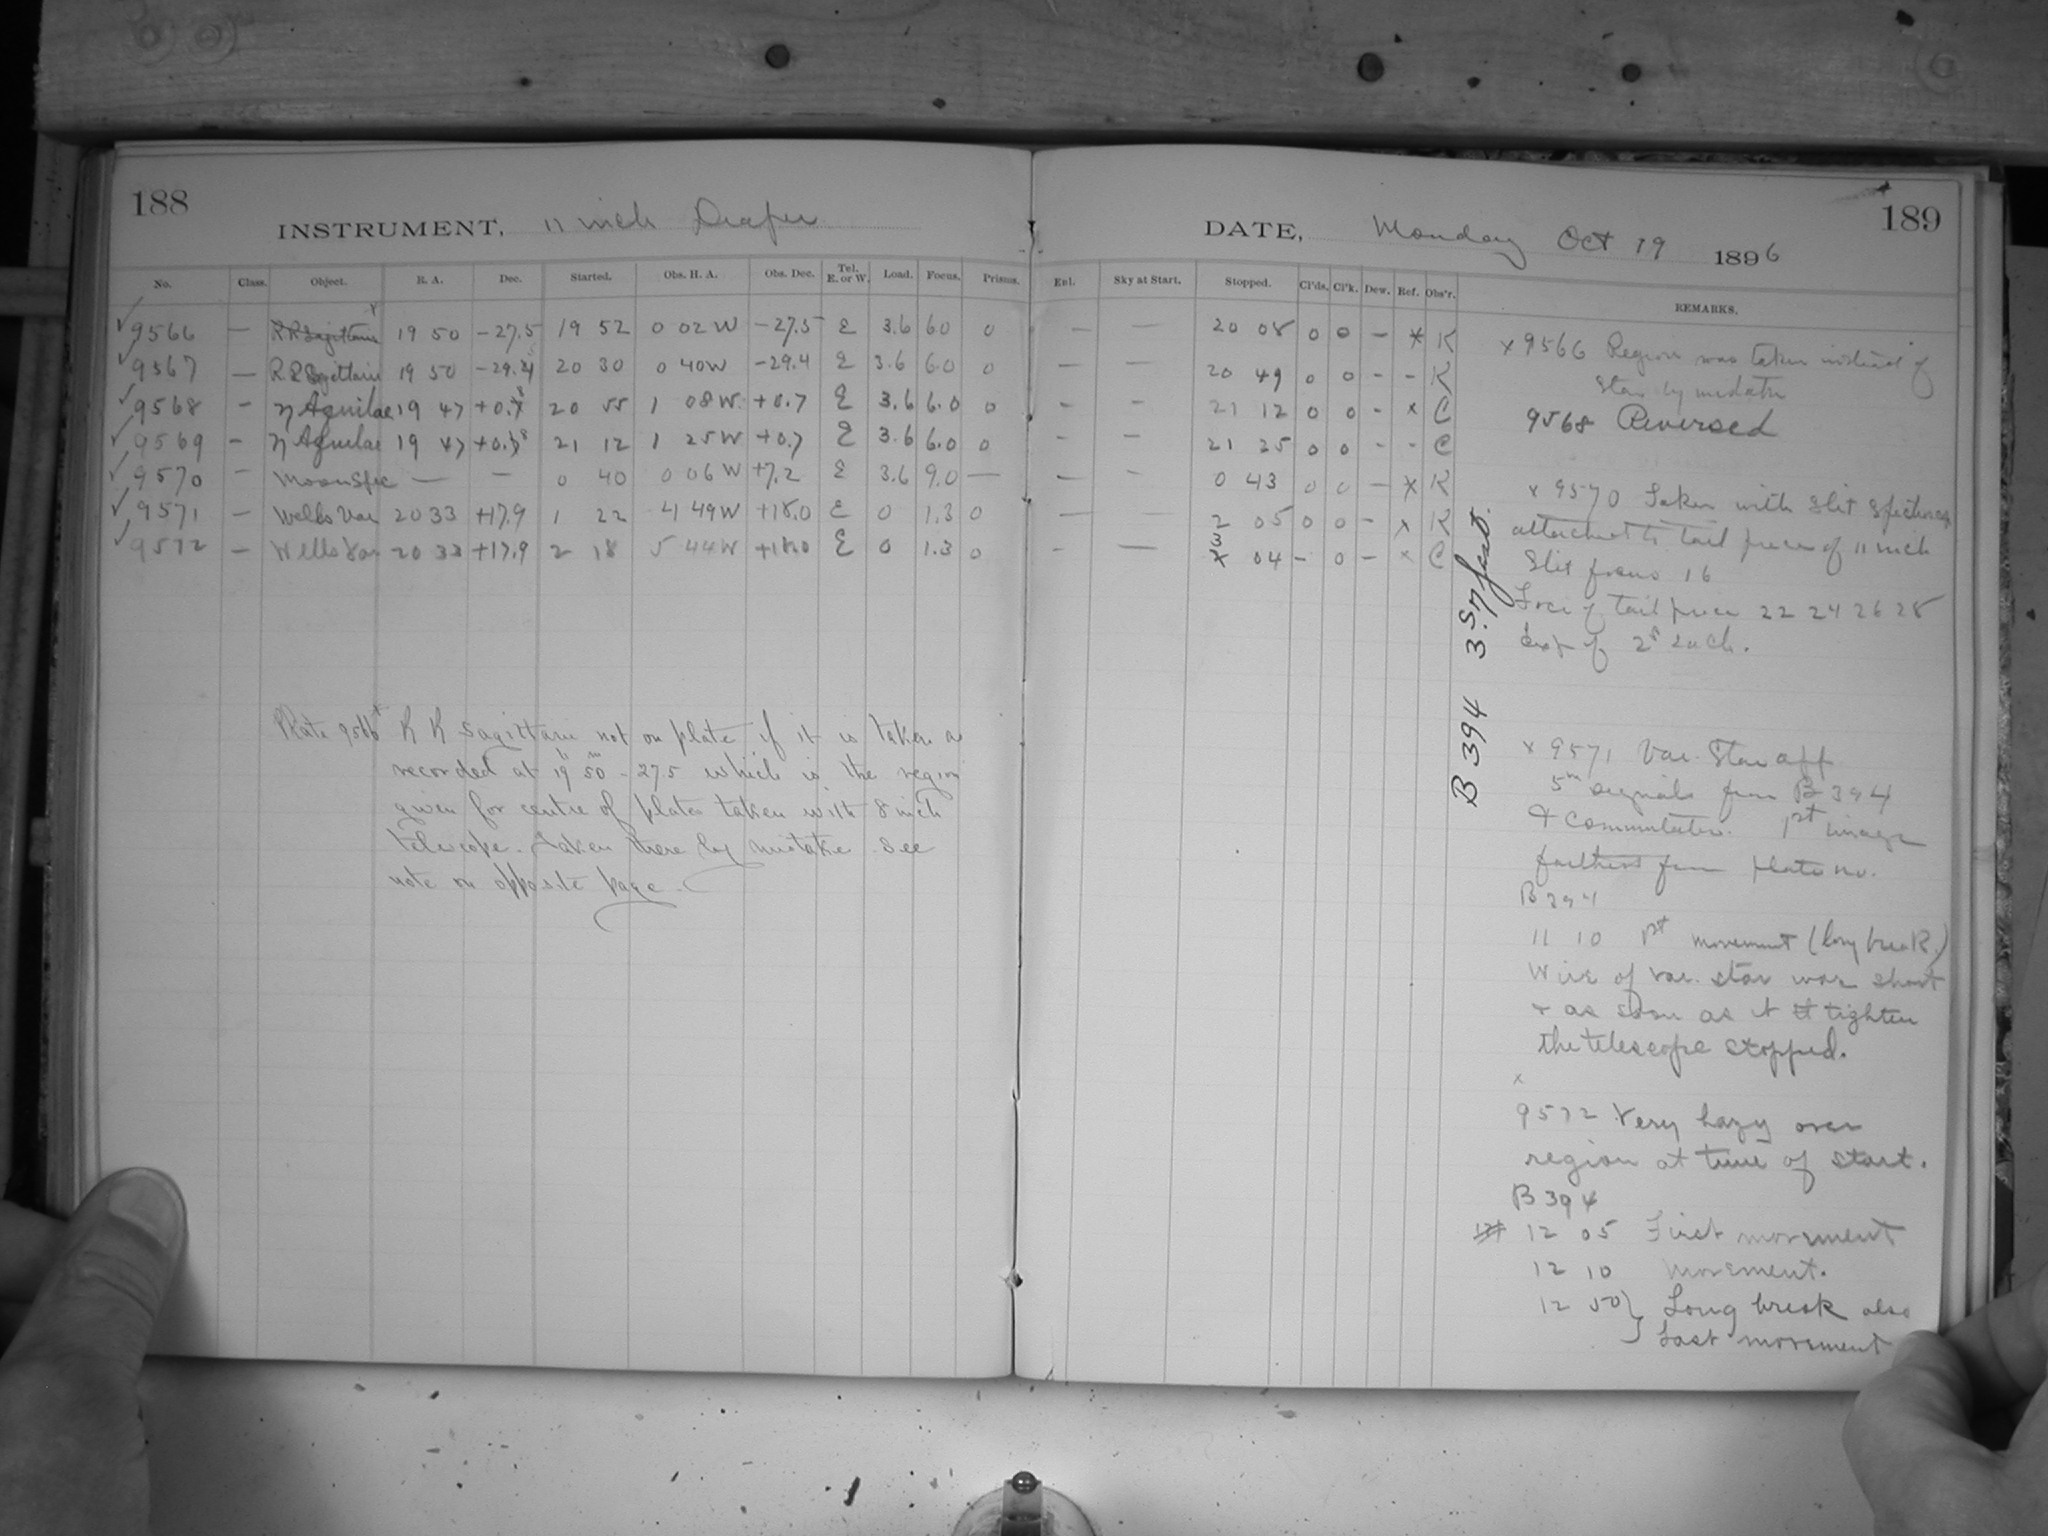 188
INSTRUMENT, 11 inch Draper
No. Class. Object. R. A. Dec. Started. Obs. H. A. Obs. Dec. Tel. E. or W. Load. Focus. Prisms.
✓ 9566 — RR Sagittarii x 19 50 -27.5 19 52 0 02 W -27.5 E 3.6 6.0 0
✓ 9567 — RR Sagittarii 19 50 -29.4 20 30 0 40 W -29.4 E 3.6 6.0 0
✓ 9568 — η Aquilae 19 47 +0.8 20 55 1 08 W +0.7 E 3.6 6.0 0
✓ 9569 — η Aquilae 19 47 +0.8 21 12 1 25 W +0.7 E 3.6 6.0 0
✓ 9570 — Moon Spec — — 0 40 0 06 W +7.2 E 3.6 9.0 —
✓ 9571 — Wells Var 20 33 +17.9 1 22 4 49 W +18.0 E 0 1.3 0
✓ 9572 — Wells Var 20 33 +17.9 2 18 5 44 W +18.0 E 0 1.3 0
Plate 9566 + R R Sagittarii not on plate if it is taken as
recorded at 19h 50m -27.5 which is the region
given for centre of plates taken with 8 inch
telescope. Taken there by mistake. See
note on opposite page.
189
DATE, Monday Oct 19 1896
Enl. Sky at Start. Stopped. Cl'ds. Cl'k. Dew. Ref. Obs'r. REMARKS.
— — 20 08 0 0 — x K
— — 20 49 0 0 - - K
- - 21 12 0 0 - x C
— — 21 25 0 0 - - C
— - 0 43 0 0 — x K
— — 2 05 0 0 - x K
- — 3 04 - 0 - x C
x 9566 Region was taken instead of
Star by mistake
9568 Reversed
x 9570 Taken with Slit Spectroscope
attached to tail piece of 11 inch
Slit focus 16
Foci of tail piece 22 24 26 28
Exp of 2s each.
B 394 3.s7 fast.
x 9571 Var. Star app
5m signals from B 394
& Commutator. 1st image
farthest from plate no.
B 394
11 10 1st movement (long break.)
Wire of var. star was short
+ as soon as it tighten
the telescope stopped.
x
9572 Very hazy over
region at time of start.
B 394
12 05 First movement
12 10 movement.
12 50 } Long break also
} Last movement